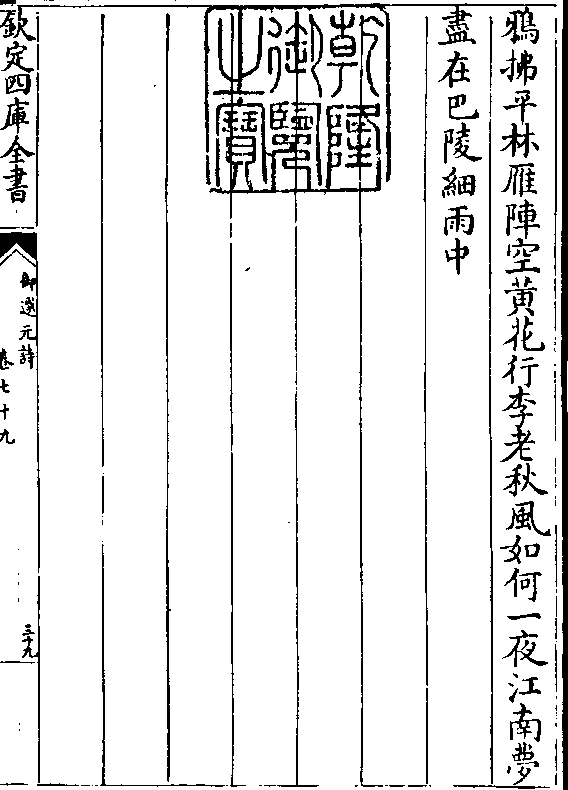 鴉拂平林雁陣空黃花行李老秋風如何一夜江南夢
盡在巴陵細雨中
乾隆
御覽
之寶
欽定四庫全書
御選元詩
卷七十九
三十九